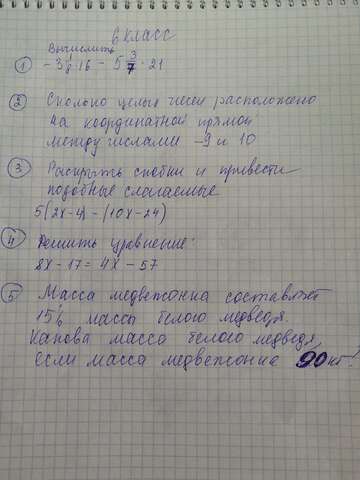 6 класс
Вычислить
① -3 1/8 · 16 - 5 3/7 · 21
② Сколько целых чисел расположено
на координатной прямой
между числами -9 и 10
③ Раскрыть скобки и привести
подобные слагаемые
5(2х-4)-(10х-24)
④ Решить уравнение:
8х-17=4х-57
⑤ Масса медвежонка составляет
15% массы белого медведя.
Какова масса белого медведя,
если масса медвежонка 90 кг?